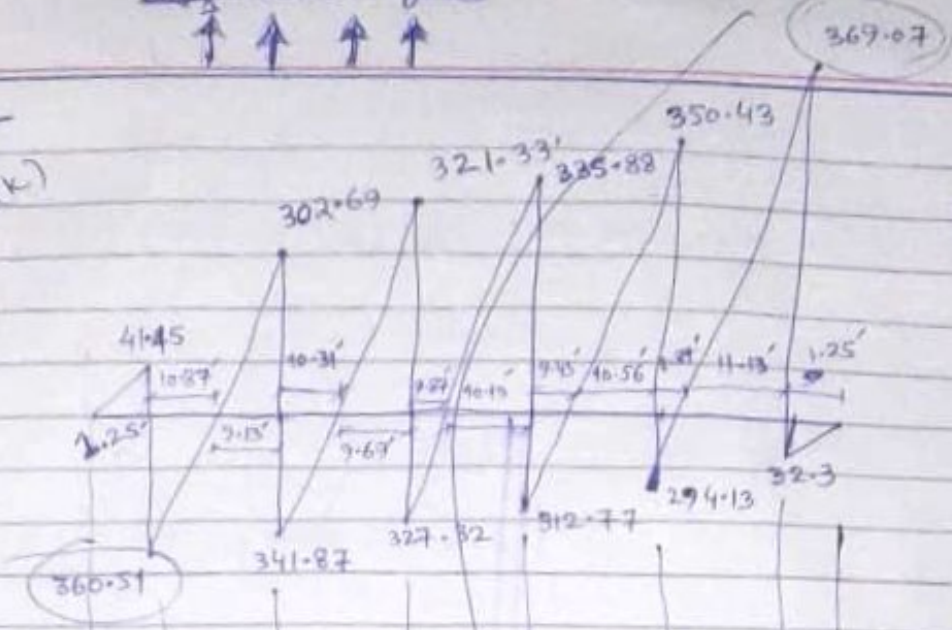 369.07
350.43
321.33'
335.88
K)
302.69
41.45
10.87'
10.31'
9.87'
10.13'
9.43'
10.56'
11.13'
1.25'
1.25'
9.13'
9.69'
32.3
294.13
312.77
327.32
341.87
360.51